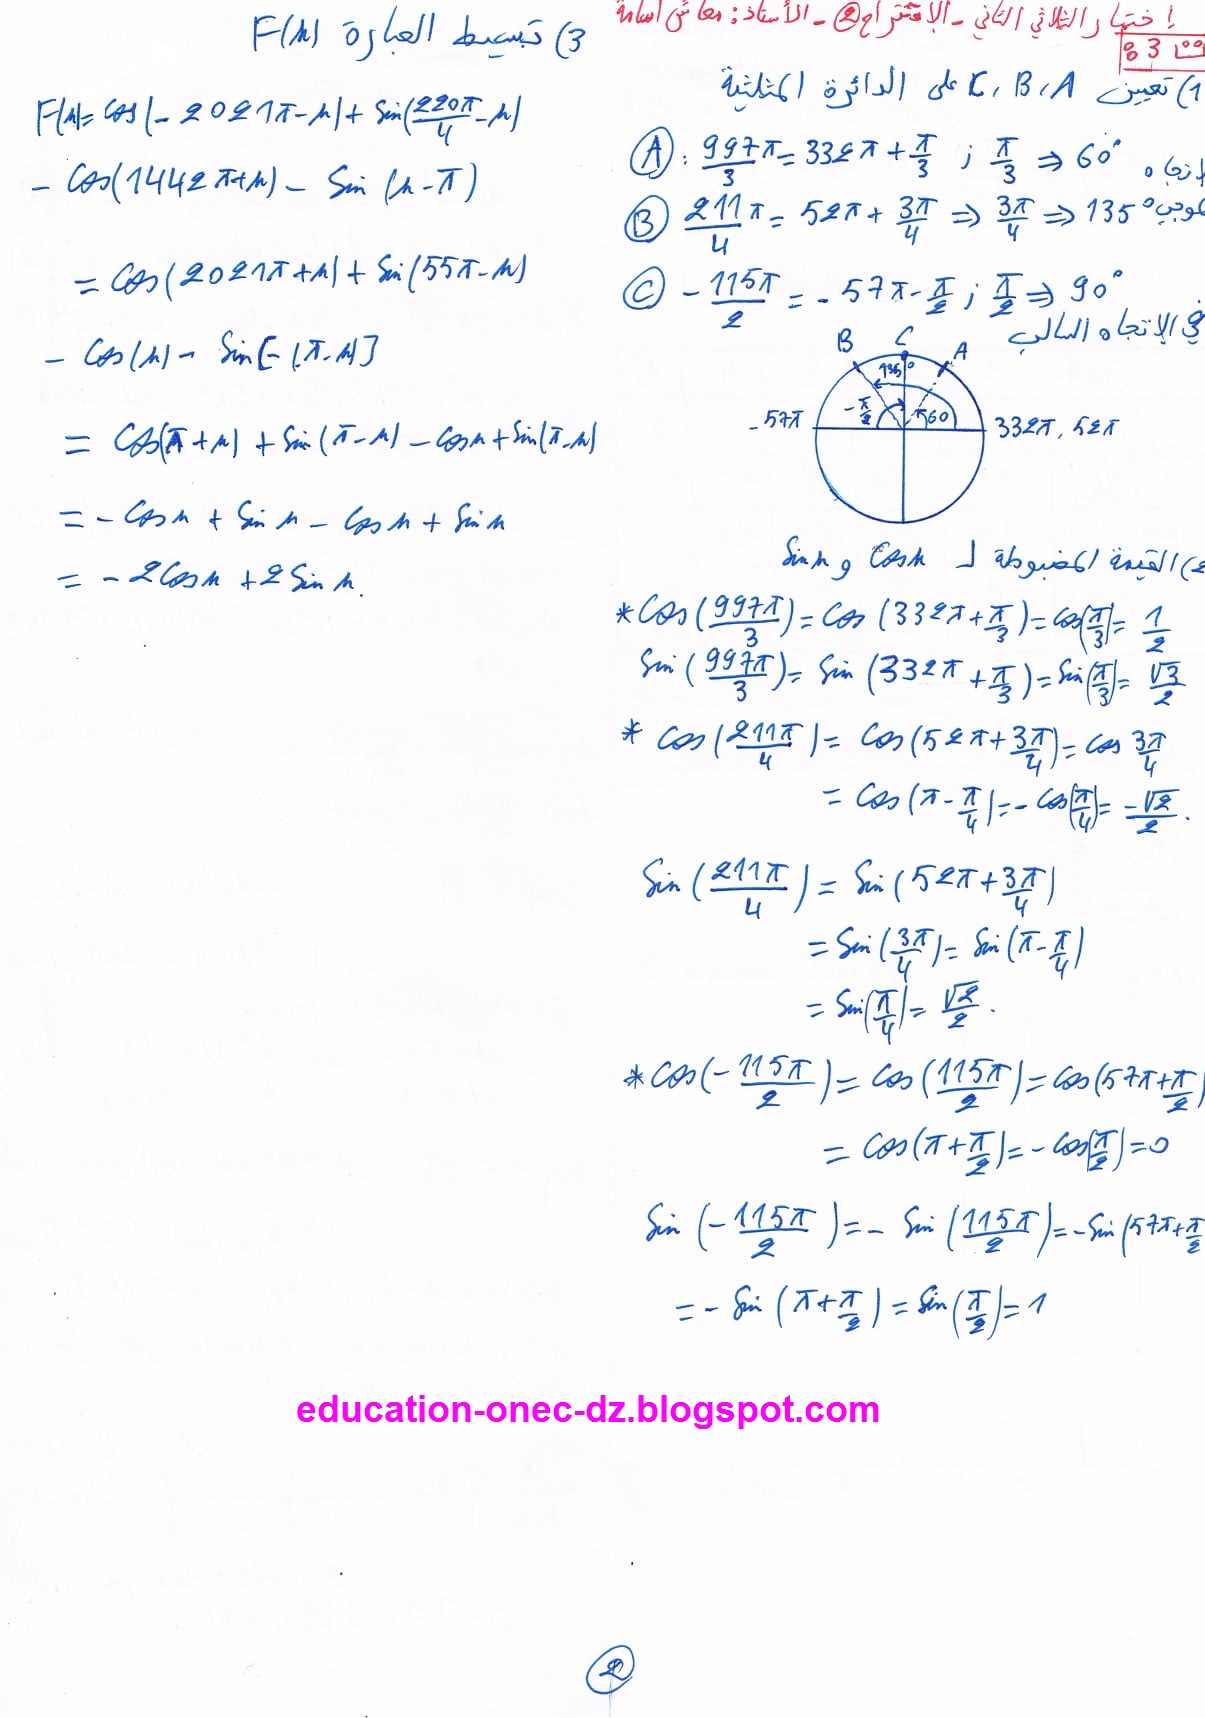 إختبار الثلاثي الثاني - الإقتراح ② - الأستاذ:
ت 3 :
1) تعيين C, B, A على الدائرة المثلثية
Ⓐ: 997π/3 = 332π + π/3 ; π/3 ⇒ 60°
Ⓑ 211π/4 = 52π + 3π/4 ⇒ 3π/4 ⇒ 135°
Ⓒ -115π/2 = -57π - π/2 ; π/2 ⇒ 90°
في الإتجاه السالب
B C A
135°
-57π -π/2 60 332π, 52π
2) القيمة المضبوطة لـ cos x و sin x
* cos(997π/3) = cos(332π + π/3) = cos(π/3) = 1/2
sin(997π/3) = sin(332π + π/3) = sin(π/3) = √3/2
* cos(211π/4) = cos(52π + 3π/4) = cos 3π/4
= cos(π - π/4) = -cos(π/4) = -√2/2.
sin(211π/4) = sin(52π + 3π/4)
= sin(3π/4) = sin(π - π/4)
= sin(π/4) = √2/2.
* cos(-115π/2) = cos(115π/2) = cos(57π + π/2)
= cos(π + π/2) = -cos(π/2) = 0
sin(-115π/2) = -sin(115π/2) = -sin(57π + π/2
= -sin(π + π/2) = sin(π/2) = 1
3) تبسيط العبارة F(x)
F(x) = cos(-2021π - x) + sin(220π/4 - x)
- cos(1442π + x) - sin(x - π)
= cos(2021π + x) + sin(55π - x)
- cos(x) - sin[-(π - x)]
= cos(π + x) + sin(π - x) - cos x + sin(π - x)
= -cos x + sin x - cos x + sin x
= -2cos x + 2 sin x.
education-onec-dz.blogspot.com
②